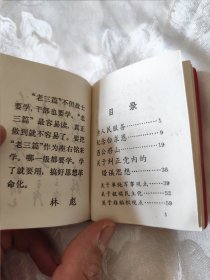 “老三篇”不但战士
要学，干部也要学。“老
三篇”最容易读，真正
做到就不容易了。要把
“老三篇”作为座右铭来
学。哪一级都要学。学
了就要用，搞好思想革
命化。
林彪
目录
为人民服务 5
纪念白求恩 9
愚公移山 13
关于纠正党内的
错误思想 19
关于单纯军事观点
关于极端民主化
关于非组织观点